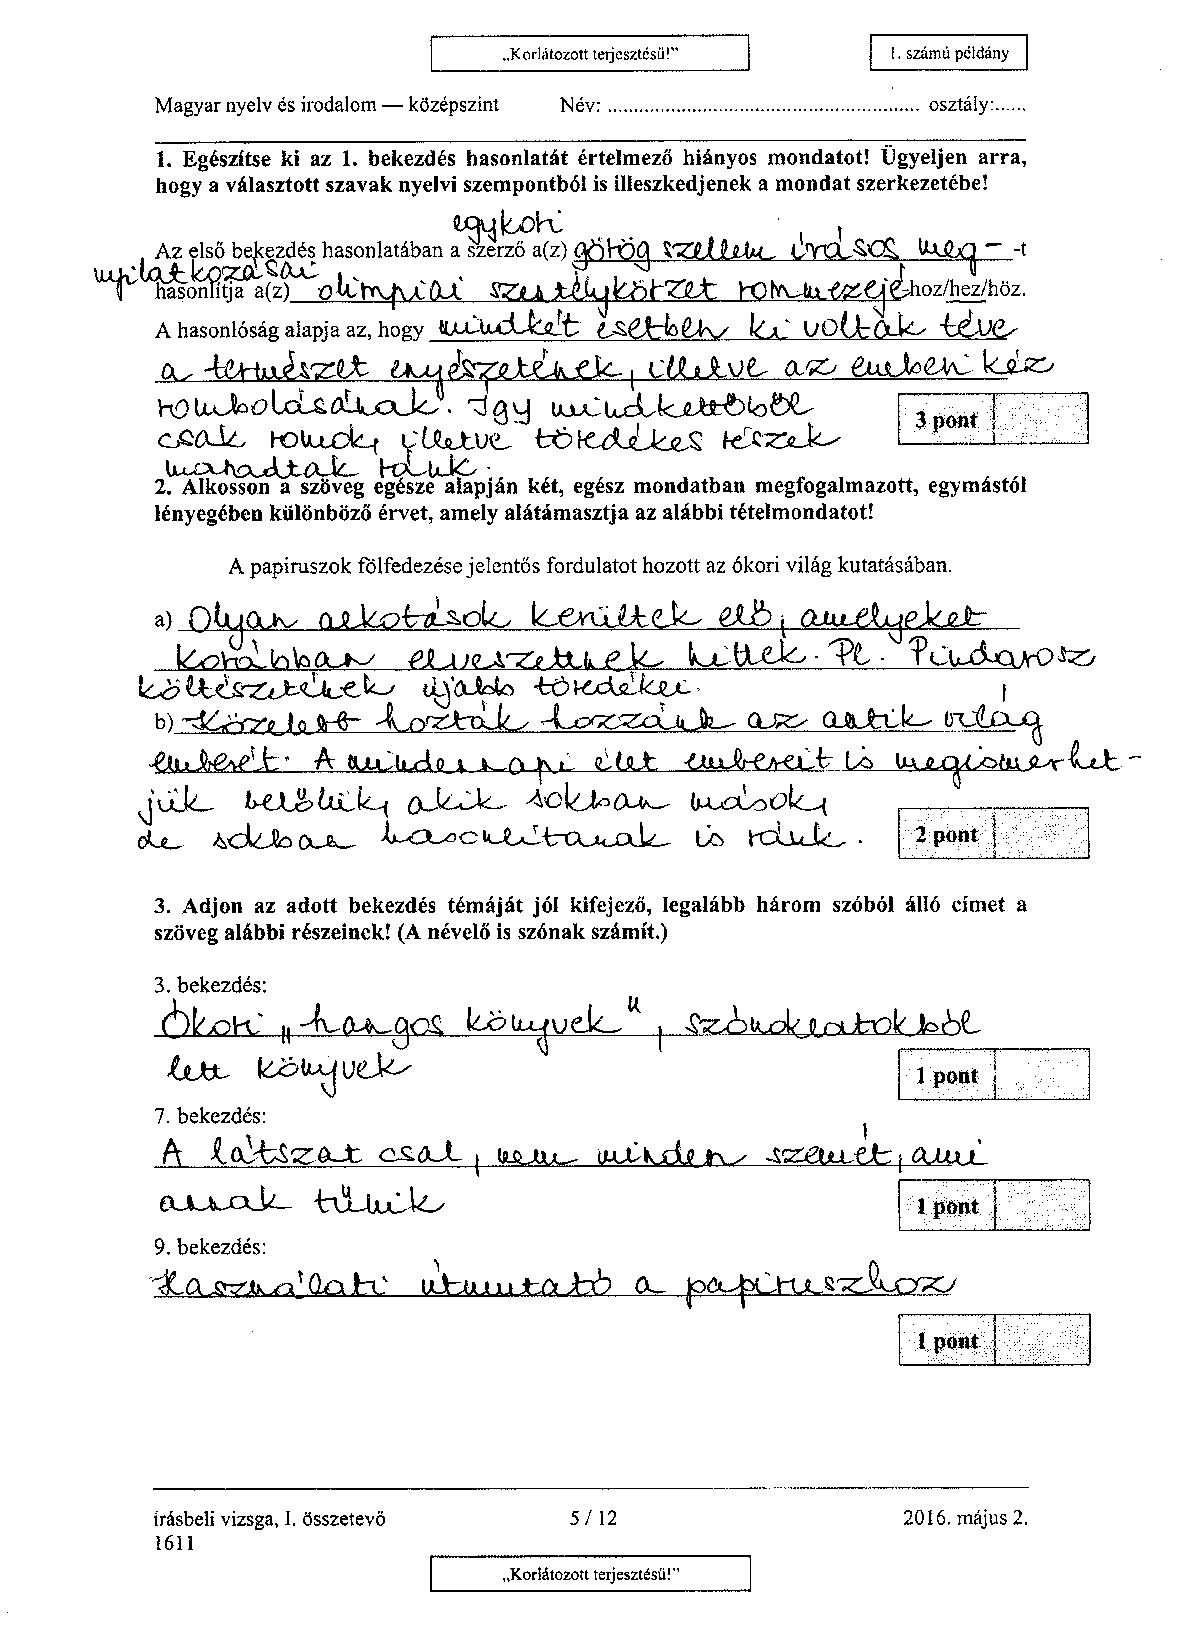 „Korlátozott terjesztésű!”
1. számú példány
Magyar nyelv és irodalom — középszint Név: ........................................................ osztály:......
1. Egészítse ki az 1. bekezdés hasonlatát értelmező hiányos mondatot! Ügyeljen arra,
hogy a választott szavak nyelvi szempontból is illeszkedjenek a mondat szerkezetébe!
egykori
Az első bekezdés hasonlatában a szerző a(z) görög szellem írásos meg- -t
nyilatkozásai
hasonlítja a(z) olimpiai szentélykörzet rommezejé-hoz/hez/höz.
A hasonlóság alapja az, hogy mindkét esetben ki voltak téve
a természet enyészetének, illetve az emberi kéz
rombolásának. Így mindkettőből
csak romok, illetve töredékes részek
maradtak ránk.
3 pont
2. Alkosson a szöveg egésze alapján két, egész mondatban megfogalmazott, egymástól
lényegében különböző érvet, amely alátámasztja az alábbi tételmondatot!
A papiruszok fölfedezése jelentős fordulatot hozott az ókori világ kutatásában.
a) Olyan alkotások kerültek elő, amelyeket
korábban elveszettnek hittek. Pl. Pindarosz
költészetének újabb töredékei.
b) Közelebb hozták hozzánk az antik világ
emberét. A mindennapi élet embereit is megismerhet-
jük belőlük, akik sokban mások,
de sokban hasonlítanak is ránk.
2 pont
3. Adjon az adott bekezdés témáját jól kifejező, legalább három szóból álló címet a
szöveg alábbi részeinek! (A névelő is szónak számít.)
3. bekezdés:
Ókori „hangos könyvek", szónoklatokból
lett könyvek
1 pont
7. bekezdés:
A látszat csal, nem minden szemét, ami
annak tűnik
1 pont
9. bekezdés:
Használati útmutató a papiruszhoz
1 pont
írásbeli vizsga, I. összetevő 5 / 12 2016. május 2.
1611
„Korlátozott terjesztésű!”